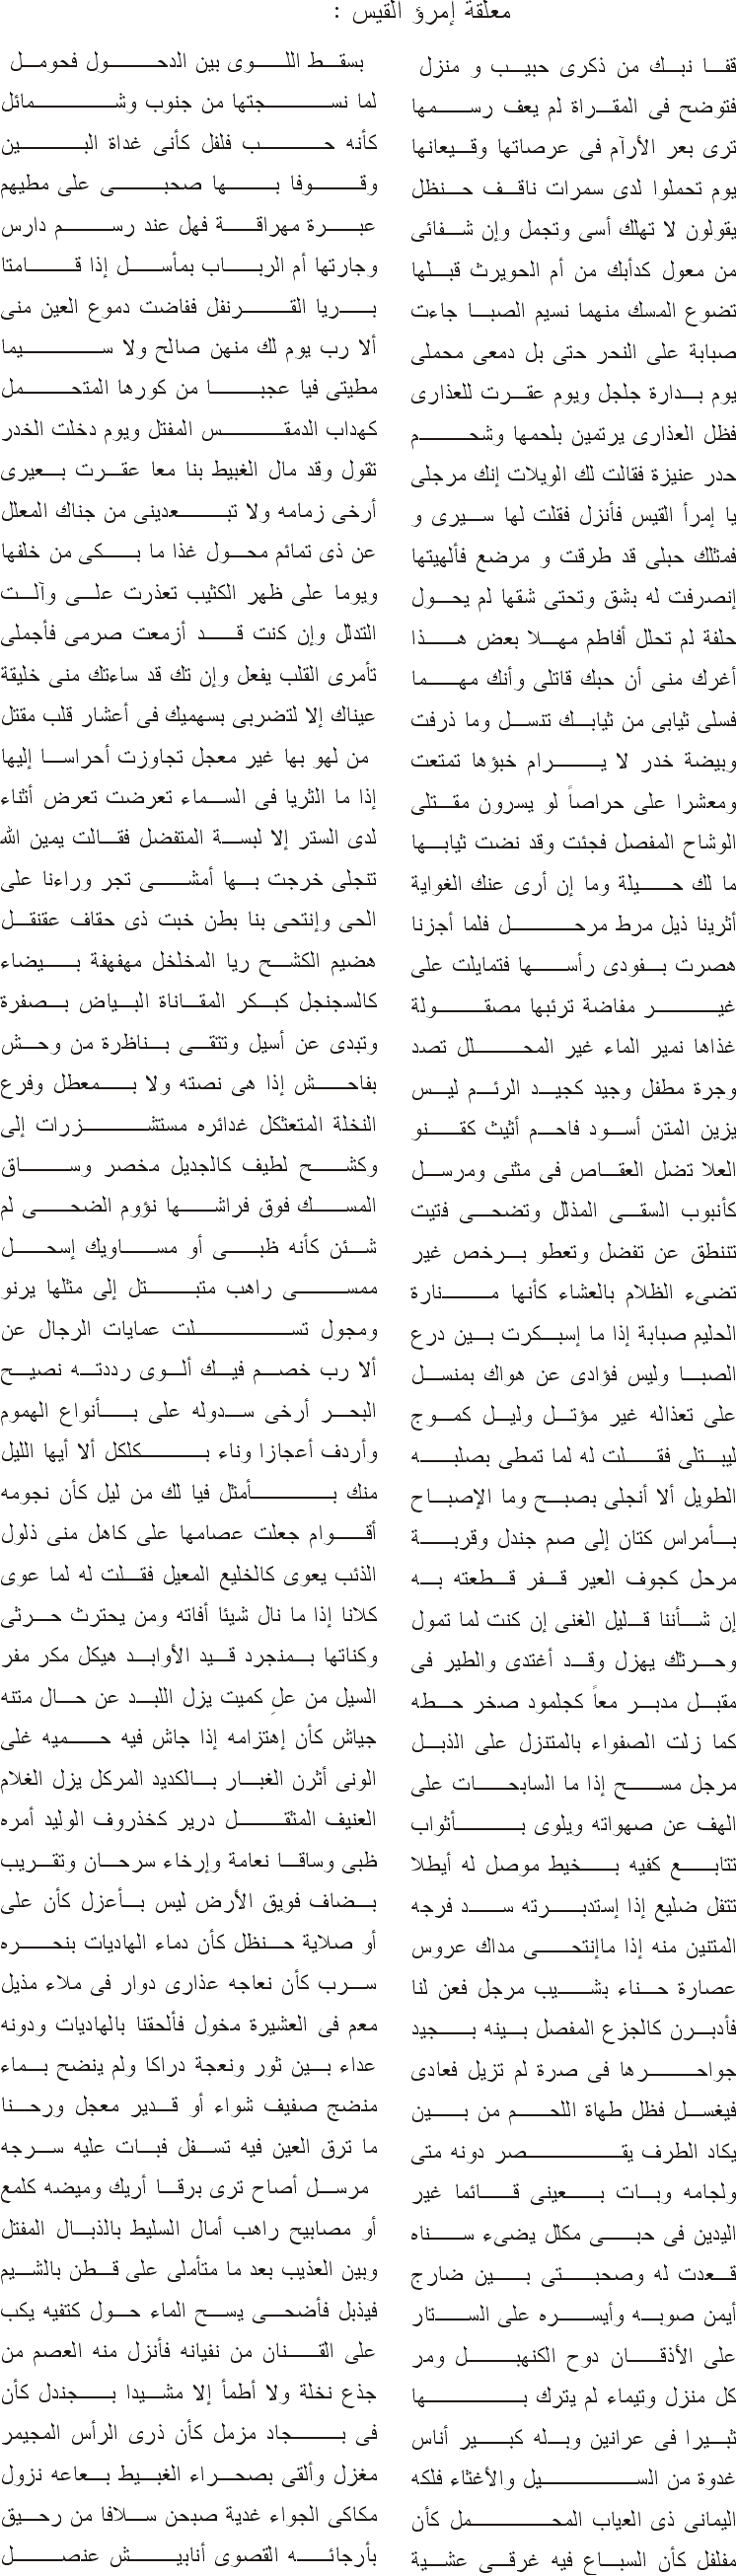 معلقة إمرؤ القيس :
قفا نبك من ذكرى حبيب و منزل بسقط اللوى بين الدحول فحومل
فتوضح فى المقراة لم يعف رسمها لما نسجتها من جنوب وشمائل
ترى بعر الأرآم فى عرصاتها وقيعانها كأنه حب فلفل كأنى غداة البين
يوم تحملوا لدى سمرات ناقف حنظل وقوفا بها صحبى على مطيهم
يقولون لا تهلك أسى وتجمل وإن شفائى عبرة مهراقة فهل عند رسم دارس
من معول كدأبك من أم الحويرث قبلها وجارتها أم الرباب بمأسل إذا قامتا
تضوع المسك منهما نسيم الصبا جاءت بريا القرنفل ففاضت دموع العين منى
صبابة على النحر حتى بل دمعى محملى ألا رب يوم لك منهن صالح ولا سيما
يوم بدارة جلجل ويوم عقرت للعذارى مطيتى فيا عجبا من كورها المتحمل
فظل العذارى يرتمين بلحمها وشحم كهداب الدمقس المفتل ويوم دخلت الخدر
حدر عنيزة فقالت لك الويلات إنك مرجلى تقول وقد مال الغبيط بنا معا عقرت بعيرى
يا إمرأ القيس فأنزل فقلت لها سيرى و أرخى زمامه ولا تبعدينى من جناك المعلل
فمثلك حبلى قد طرقت و مرضع فألهيتها عن ذى تمائم محول غذا ما بكى من خلفها
إنصرفت له بشق وتحتى شقها لم يحول ويوما على ظهر الكثيب تعذرت على وآلت
حلفة لم تحلل أفاطم مهلا بعض هذا التدلل وإن كنت قد أزمعت صرمى فأجملى
أغرك منى أن حبك قاتلى وأنك مهما تأمرى القلب يفعل وإن تك قد ساءتك منى خليقة
فسلى ثيابى من ثيابك تنسل وما ذرفت عيناك إلا لتضربى بسهميك فى أعشار قلب مقتل
وبيضة خدر لا يرام خبؤها تمتعت من لهو بها غير معجل تجاوزت أحراسا إليها
ومعشرا على حراصاً لو يسرون مقتلى إذا ما الثريا فى السماء تعرضت تعرض أثناء
الوشاح المفصل فجئت وقد نضت ثيابها لدى الستر إلا لبسة المتفضل فقالت يمين الله
ما لك حيلة وما إن أرى عنك الغواية تنجلى خرجت بها أمشى تجر وراءنا على
أثرينا ذيل مرط مرحل فلما أجزنا الحى وإنتحى بنا بطن خبت ذى حقاف عقنقل
هصرت بفودى رأسها فتمايلت على هضيم الكشح ريا المخلخل مهفهفة بيضاء
غير مفاضة ترئبها مصقولة كالسجنجل كبكر المقاناة البياض بصفرة
غذاها نمير الماء غير المحلل تصد وتبدى عن أسيل وتتقى بناظرة من وحش
وجرة مطفل وجيد كجيد الرئم ليس بفاحش إذا هى نصته ولا بمعطل وفرع
يزين المتن أسود فاحم أثيث كقنو النخلة المتعثكل غدائره مستشزرات إلى
العلا تضل العقاص فى مثنى ومرسل وكشح لطيف كالجديل مخصر وساق
كأنبوب السقى المذلل وتضحى فتيت المسك فوق فراشها نؤوم الضحى لم
تنتطق عن تفضل وتعطو برخص غير شئن كأنه ظبى أو مساويك إسحل
تضىء الظلام بالعشاء كأنها منارة ممسى راهب متبتل إلى مثلها يرنو
الحليم صبابة إذا ما إسبكرت بين درع ومجول تسلت عمايات الرجال عن
الصبا وليس فؤادى عن هواك بمنسل ألا رب خصم فيك ألوى رددته نصيح
على تعذاله غير مؤتل وليل كموج البحر أرخى سدوله على بأنواع الهموم
ليبتلى فقلت له لما تمطى بصلبه وأردف أعجازا وناء بكلكل ألا أيها الليل
الطويل ألا أنجلى بصبح وما الإصباح منك بأمثل فيا لك من ليل كأن نجومه
بأمراس كتان إلى صم جندل وقربة أقوام جعلت عصامها على كاهل منى ذلول
مرحل كجوف العير قفر قطعته به الذئب يعوى كالخليع المعيل فقلت له لما عوى
إن شأننا قليل الغنى إن كنت لما تمول كلانا إذا ما نال شيئا أفاته ومن يحترث حرثى
وحرثك يهزل وقد أغتدى والطير فى وكناتها بمنجرد قيد الأوابد هيكل مكر مفر
مقبل مدبر معاً كجلمود صخر حطه السيل من علِ كميت يزل اللبد عن حال متنه
كما زلت الصفواء بالمتنزل على الذبل جياش كأن إهتزامه إذا جاش فيه حميه غلى
مرجل مسح إذا ما السابحات على الونى أثرن الغبار بالكديد المركل يزل الغلام
الهف عن صهواته ويلوى بأثواب العنيف المثقل درير كخذروف الوليد أمره
تتابع كفيه بخيط موصل له أيطلا ظبى وساقا نعامة وإرخاء سرحان وتقريب
تتفل ضليع إذا إستدبرته سد فرجه بضاف فويق الأرض ليس بأعزل كأن على
المتنين منه إذا ماإنتحى مداك عروس أو صلاية حنظل كأن دماء الهاديات بنحره
عصارة حناء بشيب مرجل فعن لنا سرب كأن نعاجه عذارى دوار فى ملاء مذيل
فأدبرن كالجزع المفصل بينه بجيد معم فى العشيرة مخول فألحقنا بالهاديات ودونه
جواحرها فى صرة لم تزيل فعادى عداء بين ثور ونعجة دراكا ولم ينضح بماء
فيغسل فظل طهاة اللحم من بين منضج صفيف شواء أو قدير معجل ورحنا
يكاد الطرف يقصر دونه متى ما ترق العين فيه تسفل فبات عليه سرجه
ولجامه وبات بعينى قائما غير مرسل أصاح ترى برقا أريك وميضه كلمع
اليدين فى حبى مكلل يضىء سناه أو مصابيح راهب أمال السليط بالذبال المفتل
قعدت له وصحبتى بين ضارج وبين العذيب بعد ما متأملى على قطن بالشيم
أيمن صوبه وأيسره على الستار فيذبل فأضحى يسح الماء حول كتفيه يكب
على الأذقان دوح الكنهبل ومر على القنان من نفيانه فأنزل منه العصم من
كل منزل وتيماء لم يترك بها جذع نخلة ولا أطمأ إلا مشيدا بجندل كأن
ثبيرا فى عرانين وبله كبير أناس فى بجاد مزمل كأن ذرى الرأس المجيمر
غدوة من السيل والأغثاء فلكه مغزل وألقى بصحراء الغبيط بعاعه نزول
اليمانى ذى العياب المحمل كأن مكاكى الجواء غدية صبحن سلافا من رحيق
مفلفل كأن السباع فيه غرقى عشية بأرجائه القصوى أنابيش عنصل